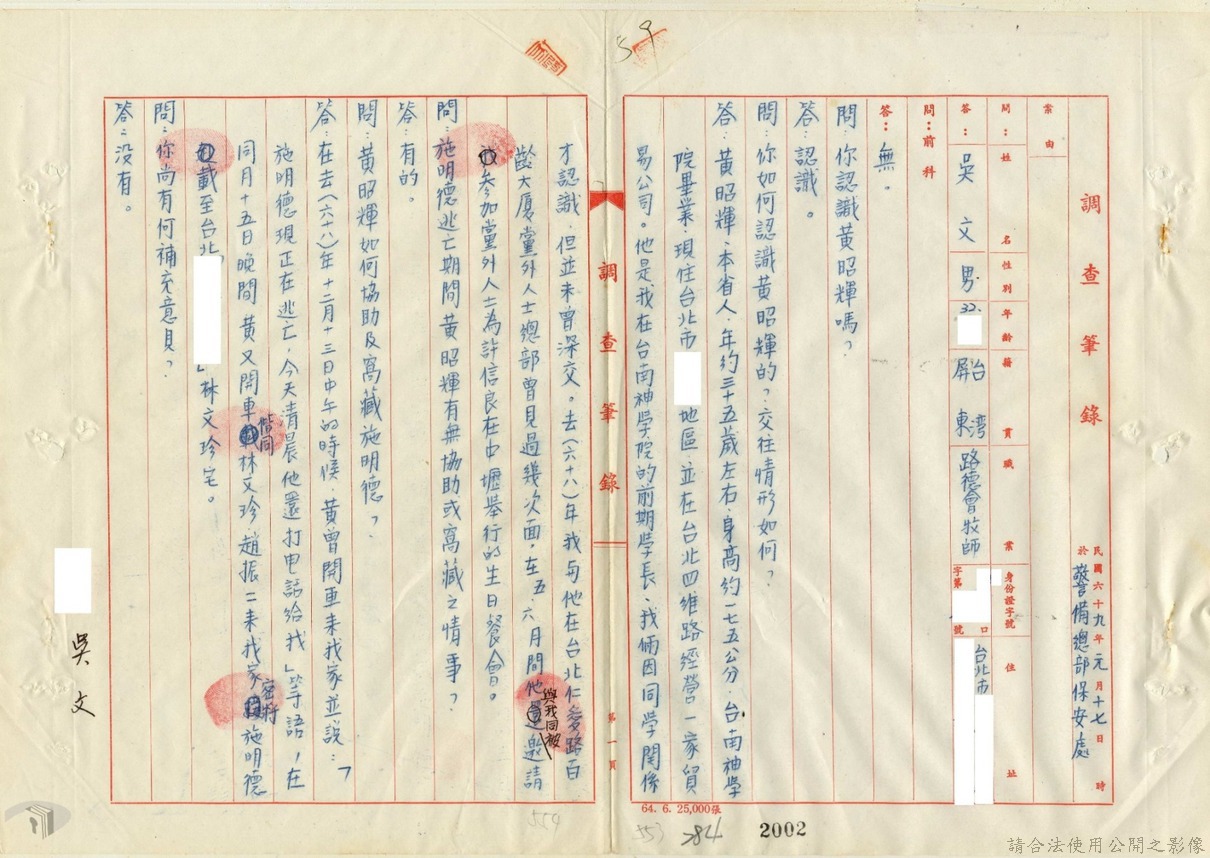 調查筆錄
民國六十九年元月十七日 時
於警備總部保安處
案由
問：姓名 性別 年齡 籍貫 職業 身份證字號 住址
答：吳文 男 32. 台灣屏東 路德會牧師 字第 號 台北市
問：前科
答：無。
問：你認識黃昭輝嗎？
答：認識。
問：你如何認識黃昭輝的？交往情形如何？
答：黃昭輝．本省人．年約三十五歲左右．身高約一七五公分．台南神學
院畢業．現住台北市 地區．並在台北四維路經營一家貿
易公司。他是我在台南神學院的前期學長、我倆因同學關係
調查筆錄
第一頁
才認識．但並未曾深交。去（六十八）年我与他在台北仁愛路百
齡大廈黨外人士總部曾見過幾次面，在五．六月間他與我同被邀請
參加黨外人士為許信良在中壢舉行的生日餐會。
問：施明德逃亡期間黃昭輝有無協助或窩藏之情事？
答：有的。
問：黃昭輝如何協助及窩藏施明德？
答：在去（六十八）年十二月十三日中午的時候．黃曾開車來我家並說：「
施明德現正在逃亡，今天清晨他還打电話給我」等語，在
同月十五日晚間黃又開車偕同林文珍趙振二來我家密將施明德
載至台北 林文珍宅。
問：你尚有何補充意見？
答：沒有。
吳文
59
64. 6. 25,000張
553
784
2002
559
請合法使用公開之影像